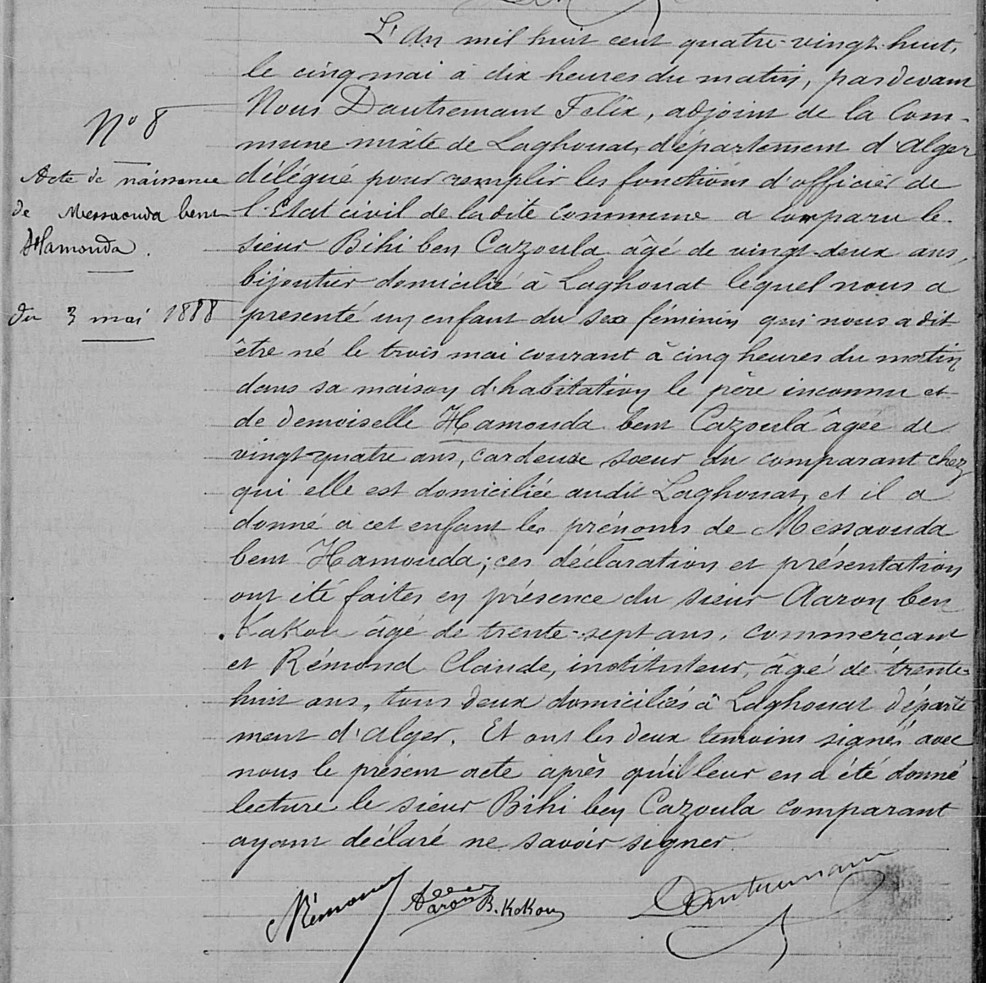 N° 8
Acte de naissance
de Messaouda bent
Hamouda.
du 3 mai 1888
L'An mil huit cent quatre-vingt-huit,
le cinq mai à dix heures du matin, par devant
Nous Dautremant Felix, adjoint de la Com-
mune mixte de Laghouat, département d'Alger
délégué pour remplir les fonctions d'officier de
l'Etat civil de la dite commune a comparu le
sieur Bihi ben Cazoula âgé de vingt-deux ans,
bijoutier domicilié à Laghouat lequel nous a
presenté un enfant du sexe féminin qui nous a dit
être né le trois mai courant à cinq heures du matin
dans sa maison d'habitation le père inconnu et
de demoiselle Hamouda bent Cazoula âgée de
vingt-quatre ans, cardeuse soeur du comparant chez
qui elle est domiciliée audit Laghouat, et il a
donné à cet enfant les prénoms de Messaouda
bent Hamouda; ces déclaration et présentation
ont été faites en présence du sieur Aaron ben
Kakou âgé de trente-sept ans, commerçant
et Rémond Claude, instituteur, âgé de trente
huit ans, tous deux domiciliés à Laghouat départe
ment d'Alger. Et ont les deux temoins signé avec
nous le présent acte après qu'il leur en a été donné
lecture le sieur Bihi ben Cazoula comparant
ayant déclaré ne savoir signer.
Rémond Aaron B. Kokou Dautremant